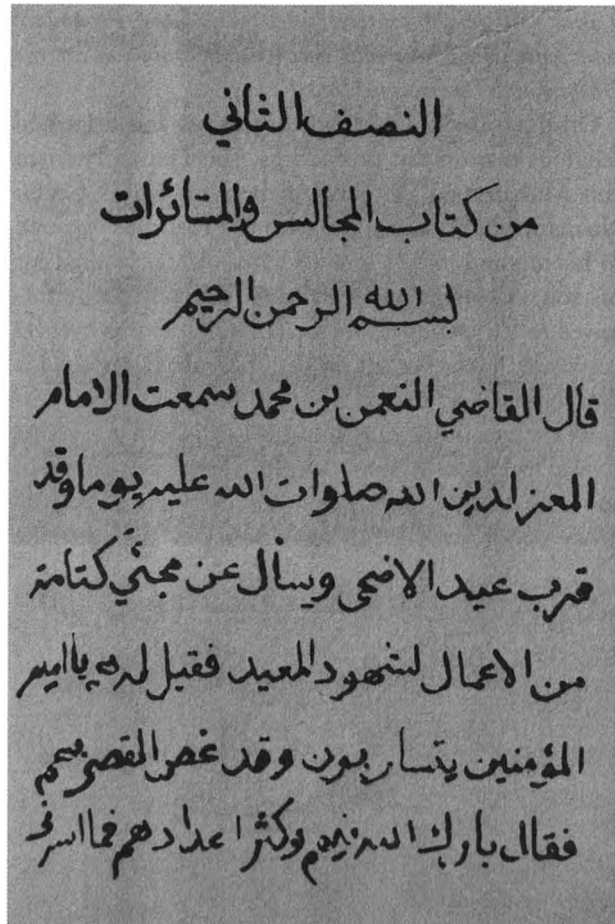 النصف الثاني
من كتاب المجالس والمتائرات
بسم الله الرحمن الرحيم
قال القاضي النعمن بن محمد سمعت الامام
المعز لدين الله صلوات الله عليه يوما وقد
قرب عيد الاضحى ويسأل عن مجئي كتامة
من الاعمال لشهود العيد فقيل له يا امير
المؤمنين يتساربون وقد غص القصر بهم
فقال بارك الله فيهم وكثر اعدادهم فما اسر